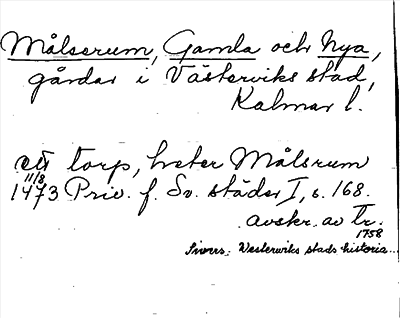 Målserum, Gamla och Nya,
gårdar i Västerviks stad,
Kalmar l.
ett torp, heter Målsrum
11/8
1473 Priv. f. Sv. städer I, s. 168.
avskr. av Tr.
1758
Sivers: Westerwiks stads historia...